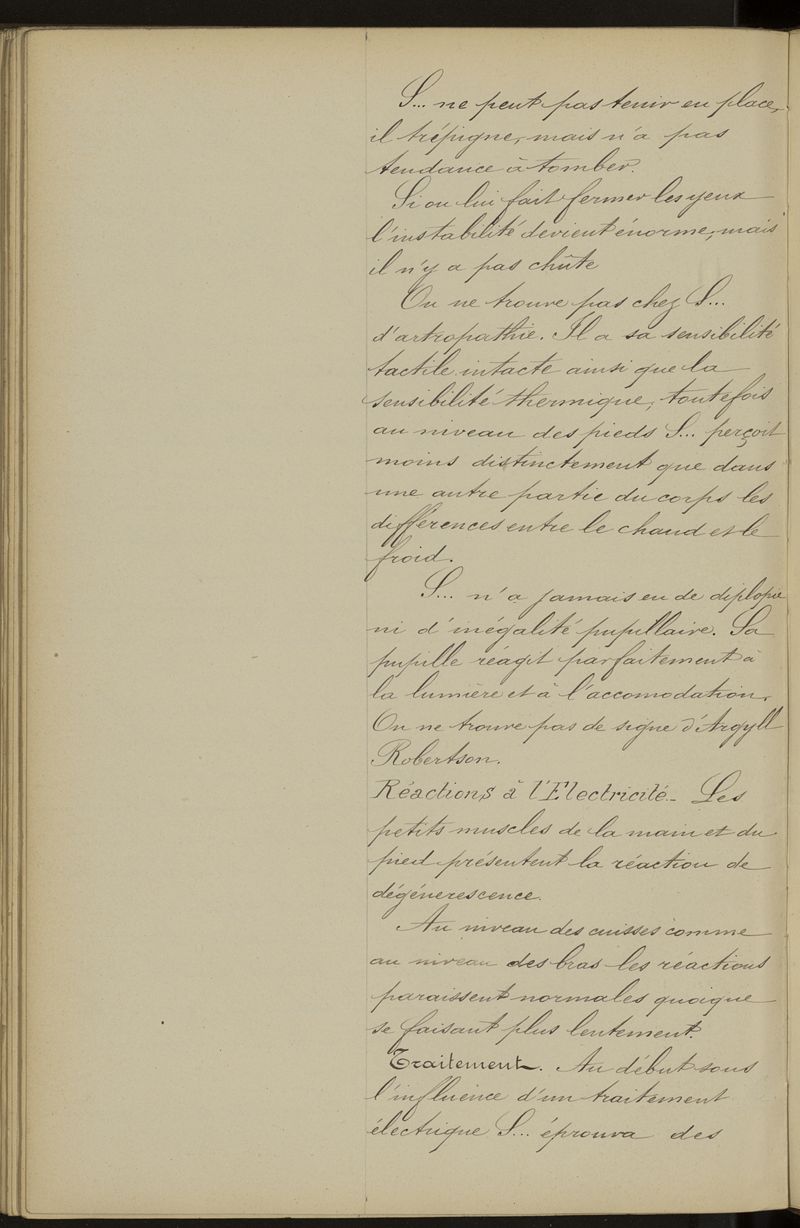 S... ne peut pas tenir en place,
il trépigne, mais n'a pas
tendance à tomber.
Si on lui fait fermer les yeux
l'instabilité devient énorme, mais
il n'y a pas chûte
On ne trouve pas chez S...
d'artropathie. Il a sa sensibilité
tactile intacte ainsi que la
sensibilité thermique, toutefois
au niveau des pieds S... perçoit
moins distinctement que dans
une autre partie du corps les
différences entre le chaud et le
froid.
S... n'a jamais eu de diplopie
ni d'inégalité pupillaire. Sa
pupille réagit parfaitement à
la lumière et à l'accomodation.
On ne trouve pas de signe d'Argyll
Robertson.
Réactions à l'Electricité_ Les
petits muscles de la main et du
pied présentent la réaction de
dégénerescence.
Au niveau des cuisses comme
au niveau des bras les réactions
paraissent normales quoique
se faisant plus lentement.
Traitement_. Au début sous
l'influence d'un traitement
électrique S... éprouva des